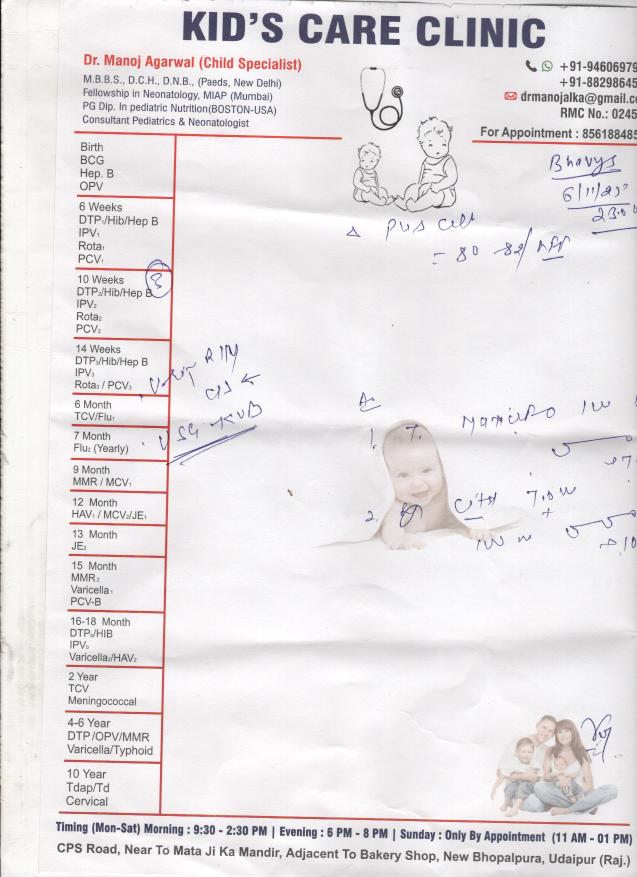 KID'S CARE CLINIC
Dr. Manoj Agarwal (Child Specialist)
M.B.B.S., D.C.H., D.N.B., (Paeds, New Delhi)
Fellowship in Neonatology, MIAP (Mumbai)
PG Dip. In pediatric Nutrition(BOSTON-USA)
Consultant Pediatrics & Neonatologist
+91-94606979
+91-88298645
drmanojalka@gmail.c
RMC No.: 0245
For Appointment : 856188485
Birth
BCG
Hep. B
OPV
6 Weeks
DTP₁/Hib/Hep B
IPV₁
Rota₁
PCV₁
10 Weeks
DTP₂/Hib/Hep B
IPV₂
Rota₂
PCV₂
14 Weeks
DTP₃/Hib/Hep B
IPV₃
Rota₃ / PCV₃
6 Month
TCV/Flu₁
7 Month
Flu₂ (Yearly)
9 Month
MMR / MCV₁
12 Month
HAV₁ / MCV₂/JE₁
13 Month
JE₂
15 Month
MMR₂
Varicella₁
PCV-B
16-18 Month
DTP₄/HIB
IPV₅
Varicella₂/HAV₂
2 Year
TCV
Meningococcal
4-6 Year
DTP/OPV/MMR
Varicella/Typhoid
10 Year
Tdap/Td
Cervical
Bhavys
6/11/20
Pus cell
= 80
R/M
C/S
USG KUB
1. T.
2.
Timing (Mon-Sat) Morning : 9:30 - 2:30 PM | Evening : 6 PM - 8 PM | Sunday : Only By Appointment (11 AM - 01 PM)
CPS Road, Near To Mata Ji Ka Mandir, Adjacent To Bakery Shop, New Bhopalpura, Udaipur (Raj.)